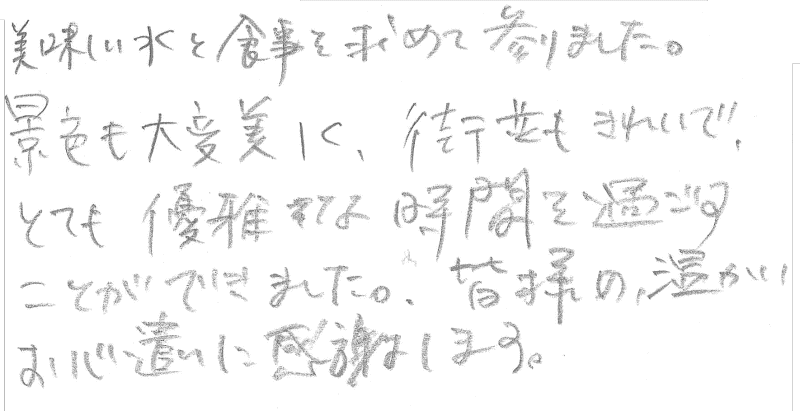 美味しい水と食事を求めて参りました。
景色も大変美しく、街並もきれいで、
とても優雅な時間を過ごす
ことができました。皆様の、温かい
お心遣いに感謝します。